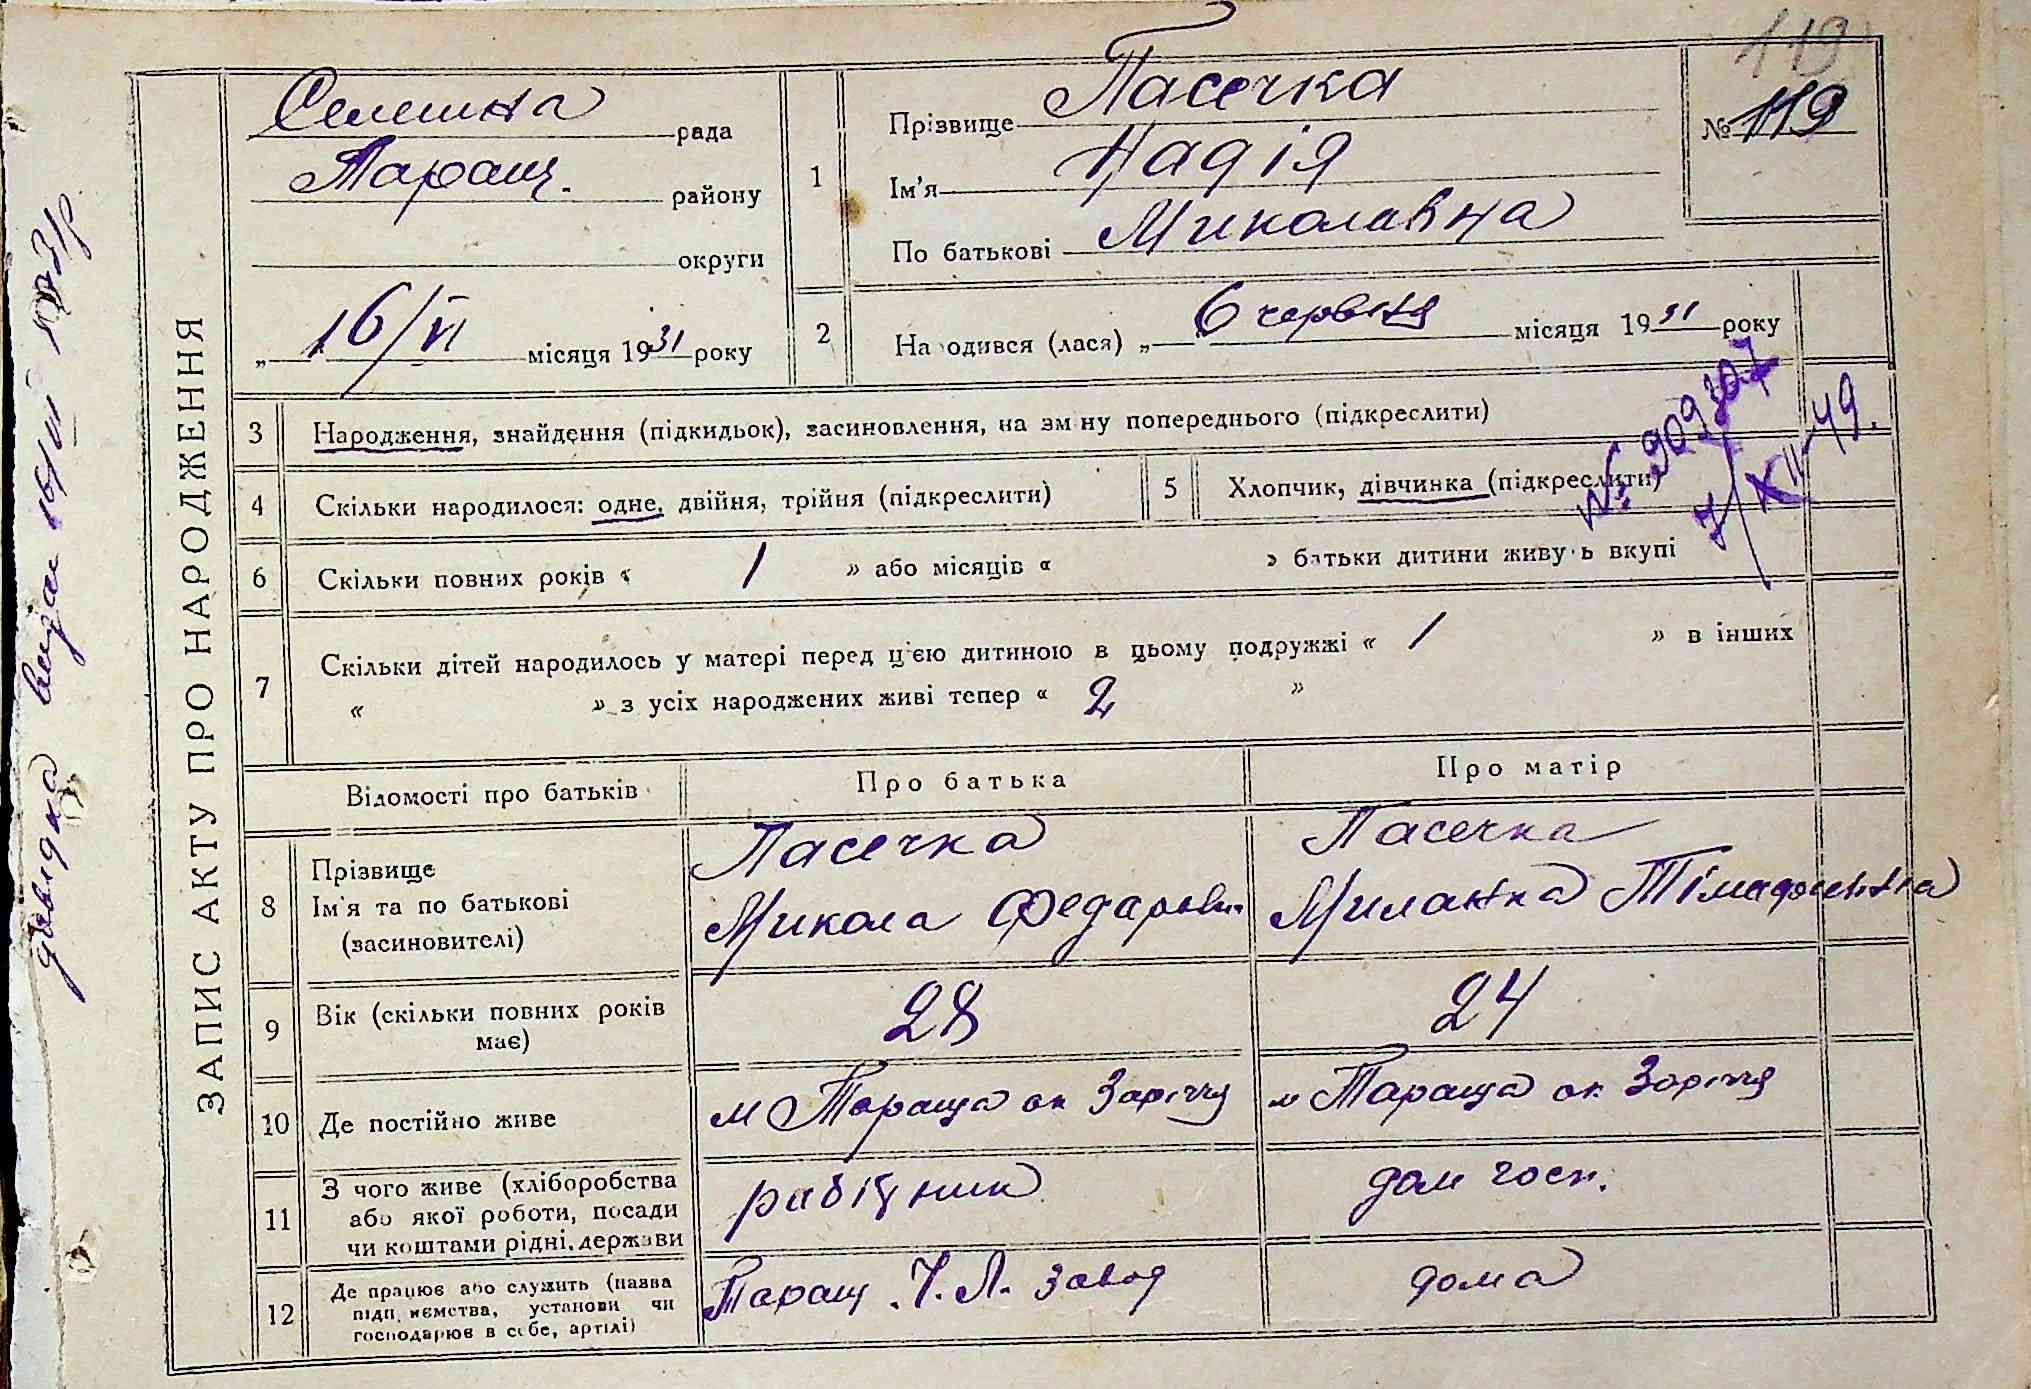 119
ЗАПИС АКТУ ПРО НАРОДЖЕННЯ
Селешна рада
Таращ. району
округи
„ 16/VI місяця 1931 року
1
Прізвище Пасечка
Ім'я Надія
По батькові Миколавна
№ 119
2
На одився (лася) „ 6 червня місяця 1931 року
3 Народження, знайдення (підкидьок), засиновлення, на зм ну попереднього (підкреслити)
№ 909307
7/XII 49.
4 Скільки народилося: одне, двійня, трійня (підкреслити)
5 Хлопчик, дівчинка (підкреслити)
6 Скільки повних років « 1 » або місяців « » батьки дитини живу ь вкупі
7 Скільки дітей народилось у матері перед цією дитиною в цьому подружжі « 1 » в інших
« » з усіх народжених живі тепер « 2 »
Відомості про батьків Про батька Про матір
8 Прізвище
Ім'я та по батькові
(засиновителі)
Пасечка
Микола Федарович
Пасечка
Миланка Тімафеивна
9 Вік (скільки повних років має) 28 24
10 Де постійно живе м Тараща ок Заріччя м Тараща ок. Заріччя
11 З чого живе (хліборобства
або якої роботи, посади
чи коштами рідні, держави
рабіцник
дом госп.
12 Де працює або служить (назва
підп иємства, установи чи
господарює в себе, артілі)
Таращ. Ч. Л. завод
дома
довидка